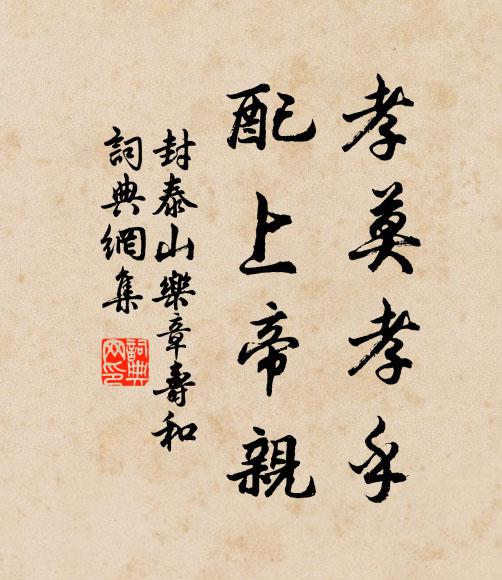 孝莫孝乎
配上帝親
封泰山樂章壽和
詞典網集
詞典
网印